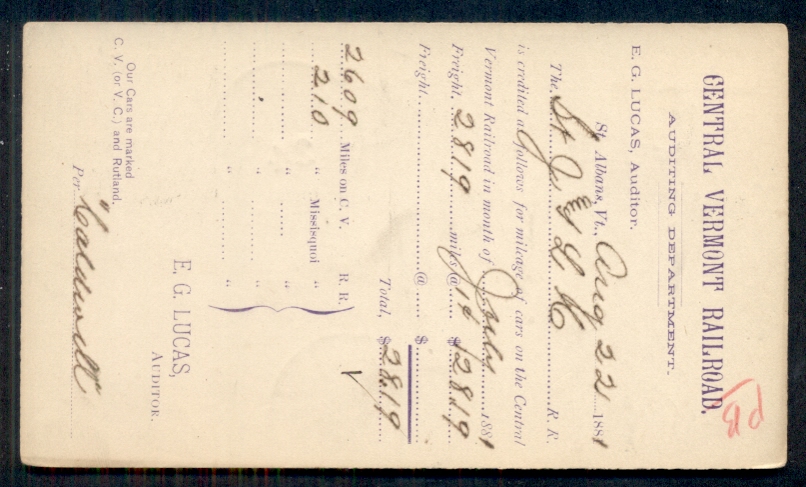 CENTRAL VERMONT RAILROAD.
AUDITING DEPARTMENT.
E. G. LUCAS, Auditor.
St. Albans, Vt., Aug 22 1881
The St J & L C R. R.
is credited as follows for mileage of cars on the Central
Vermont Railroad in month of July 1881
Freight, 2819 miles @ 1¢ $28.19
Freight, @ $
Total, $28.19
2609 Miles on C. V. R. R.
210 " Missisquoi "
" " "
" " "
E. G. LUCAS,
AUDITOR.
Our Cars are marked
C. V. (or V. C.) and Rutland.
Per Caldwell